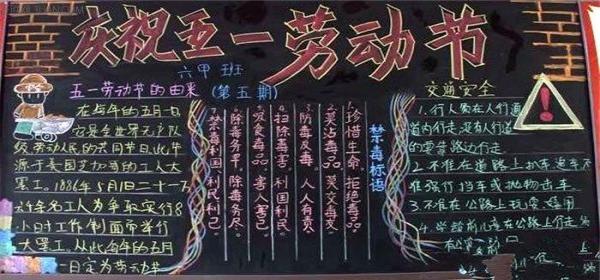 庆祝五一劳动节
六甲班
(第五期)
五一劳动节的由来
在每年的五月一日
它是全世界无产队
级、劳动人民的共同节日。此节
源于美国芝加哥的工人大
罢工。1886年5月1日二十一万
余名工人为争取实行8
小时工作制而举行
大罢工。从此每年的五月
一日定为劳动节
禁毒标语
1.珍惜生命,拒绝毒品。
2.莫沾毒品,莫交毒友。
3.防毒反毒,人人有责
4.扫除毒害,利国利民。
5.吸食毒品,害人害己。
6.除毒务早,除毒务尽。
7.禁毒利国,利民利己。
交通安全
1.行人要在人行道
道内行走,没有人行道
的要靠路边行走
2.不准在道路上扒车追车不
准强行拦车或抛物击车
3.不准在公路上玩耍嬉闹
4.学龄前儿童在公路上行走